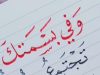 وَفِي بَسْمَتِكَ
تَجْتَمِعُ